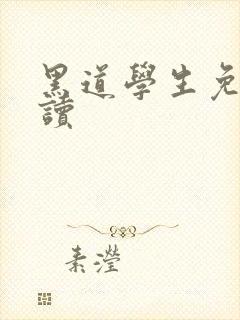 黑道學生免
讀
素瀅